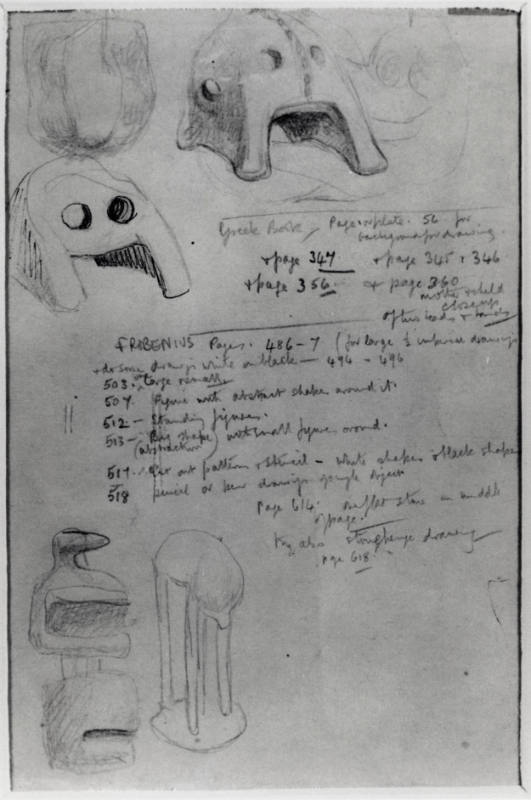 Greek Book, Page or plate. 56 for
background for drawing.
+ page 347 + page 345 + 346
+ page 356. + page 360
mother & child
close up
of two heads & hands
FROBENIUS Pages. 486-7 (for large ½ imperial drawings
+ do some drawings white on black — 494 - 496
503. Large
507. Figure with abstract shapes around it.
512 — Standing figures.
513 — Big shape (abstraction) with small figures around.
517. Cut out pattern & stencil — white shapes & black shapes
518 pencil or pen drawings jungle object
Page 614. stone in middle
of page.
Try also Stonehenge drawing
page 618